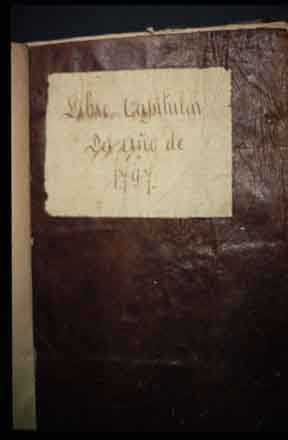 Libro Capitular
Del año de
1797.